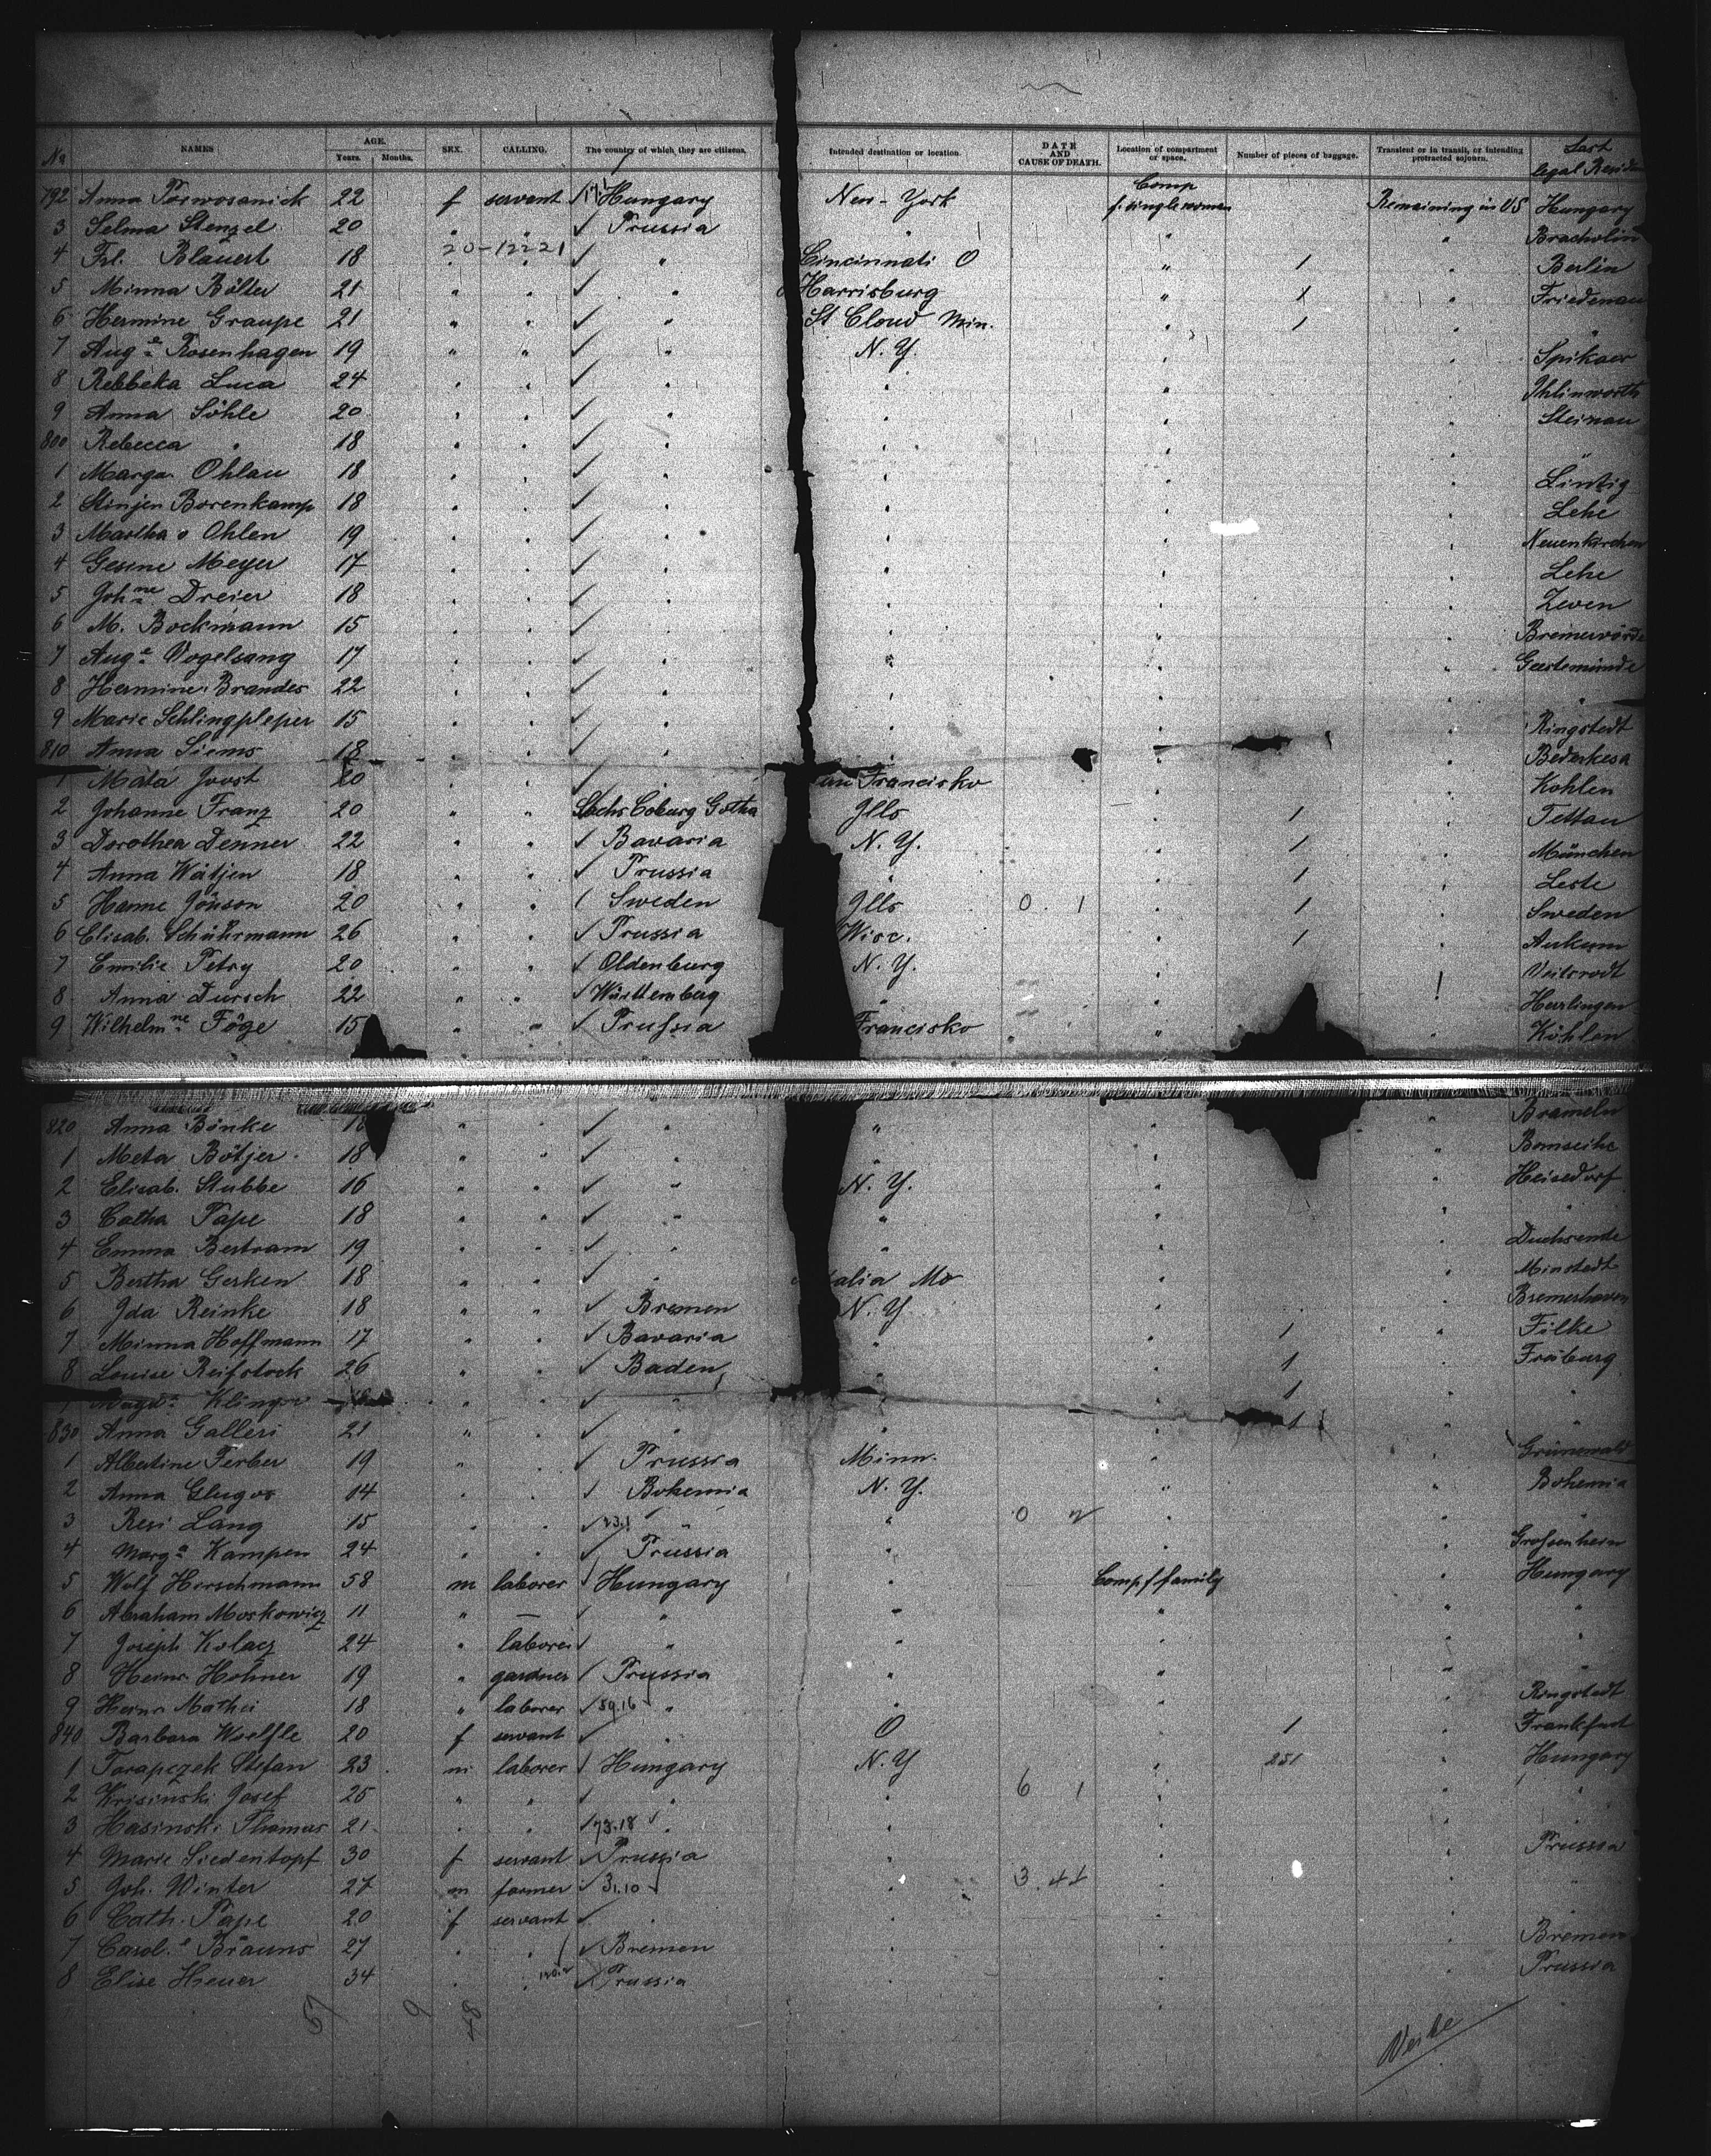 No NAMES AGE. Years. Months. SEX. CALLING. The country of which they are citizens. Intended destination or location. DATE AND CAUSE OF DEATH. Location of compartment or space. Number of pieces of baggage. Transient or in transit, or intending protracted sojourn. Last legal Residen
792 Anna 22 f servant Hungary New-York Comp f. single women Remaining in US Hungary
3 Selma Stenzel 20 " " Prussia " " "
20-12221
4 Frl. Blauert 18 " " " Cincinnati O " 1 " Berlin
5 Minna Bölter 21 " " " Harrisburg " 1 " Friedenau
6 Hermine Graupe 21 " " " St Cloud Min. " 1 " "
7 Auge Rosenhagen 19 " " " N. Y. " "
8 Rebbeka Luca 24 " " " " " "
9 Anna Söhle 20 " " " " " " Steinau
800 Rebecca " 18 " " " " " " "
1 Marga. Ohlau 18 " " " " " " Lintig
2 Stinjen Borenkamp 18 " " " " " " Lehe
3 Martha v Ohlen 19 " " " " " " Neuenkirchen
4 Gesine Meyer 17 " " " " " " Lehe
5 Johne Dreier 18 " " " " " " Zeven
6 M. Bockmann 15 " " " " " " Bremervörde
7 Auge Vogelsang 17 " " " " " " Geestemünde
8 Hermine Brandes 22 " " " " " " "
9 Marie 15 " " " " " " Ringstedt
810 Anna Siems 18 " " " " " " Bederkesa
1 Mata Joost 20 " " " an Francisko " " Kohlen
2 Johanne Franz 20 " " Sachs Coburg Gotha Ills " 1 " Tettau
3 Dorothea Denner 22 " " Bavaria N. Y. " 1 " München
4 Anna Wätjen 18 " " Prussia " " 1 " Leste
5 Hanne Jönson 20 " " Sweden Ills 0 1 " 1 " Sweden
6 Elisab. Schührmann 26 " " Prussia Wisc. " 1 " Ankum
7 Emilie Petry 20 " " Oldenburg N. Y. " " Veitsrodt
8 Anna Dursch 22 " " Württemberg " " "
9 Wilhelmne Föge 15 " " Prussia Francisko " " Köhlen
820 Anna Bönke 18 " " " " " " Brameln
1 Meta Bötjer 18 " " " " " "
2 Elisab. Stubbe 16 " " " N. Y. " "
3 Catha Pape 18 " " " " " " "
4 Emma Bertram 19 " " " " " "
5 Bertha Gerken 18 " " " alia Mo " " Minstedt
6 Ida Reinke 18 " " Bremen N. Y. " " Bremerhaven
7 Minna Hoffmann 17 " " Bavaria " " 1 " Filke
8 Louise Reifstock 26 " " Baden " " 1 " Freiburg
Magda Klinger " " " " " 1 " "
830 Anna Galleri 21 " " " " " 1 " "
1 Albertine Ferber 19 " " Prussia Minn. " " Grünewald
2 Anna Glugos 14 " " Bohemia N. Y. " " Bohemia
3 Resi Lang 15 " " 23.1 " " 0 2 " " "
4 Marga Kampen 24 " " Prussia " " " Grossenhein
5 Wolf Herschmann 58 m laborer Hungary " Comp f family " Hungary
6 Abraham Moskowicz 11 " — " " " " "
7 Joseph Kolacz 24 " laborer " " " " "
8 Heinr. Hohner 19 " gardner Prussia " " " "
9 Heinr Mathei 18 " laborer 59.16 " " " " Ringstedt
840 Barbara Woelfle 20 f servant " O " 1 " Frankfurt
1 Tarapczek Stefan 23 m laborer Hungary N. Y " 251 " Hungary
2 Krisinski Josef 25 " " " " 6 1 " " "
3 Hasinski Thomas 21 " " 73.18 " " " " "
4 Marie Siedentopf 30 f servant Prussia " " " Prussia
5 Joh. Winter 27 m farmer 31.10 " 3.41 " " "
6 Cath. Pape 20 f servant " " " " "
7 Carol.e Brauns 27 " " Bremen " " " Bremen
8 Elise Heuer 34 " " Prussia " " " Prussia
9 48